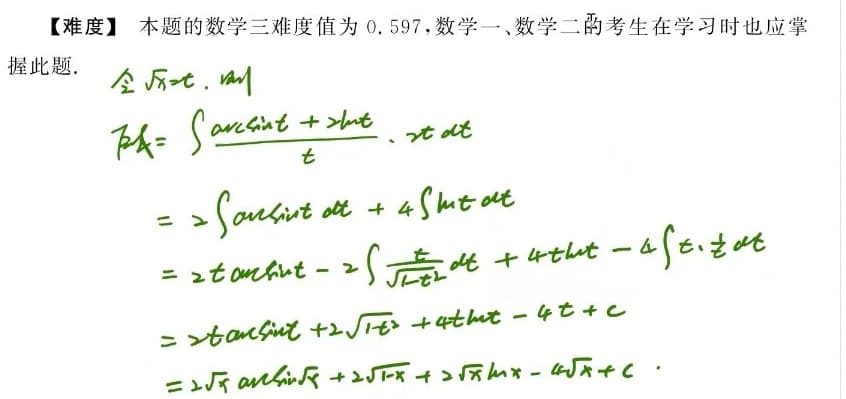 【难度】 本题的数学三难度值为 0.597,数学一、数学二的考生在学习时也应掌
握此题.
令 √x=t. 则
原式= ∫ (arcsint + 2lnt)/t · 2t dt
= 2∫arcsint dt + 4∫lnt dt
= 2t arcsint - 2∫ t/√(1-t²) dt + 4t lnt - 4∫t·1/t dt
= 2t arcsint + 2√(1-t²) + 4t lnt - 4t + c
= 2√x arcsin√x + 2√(1-x) + 2√x lnx - 4√x + c .